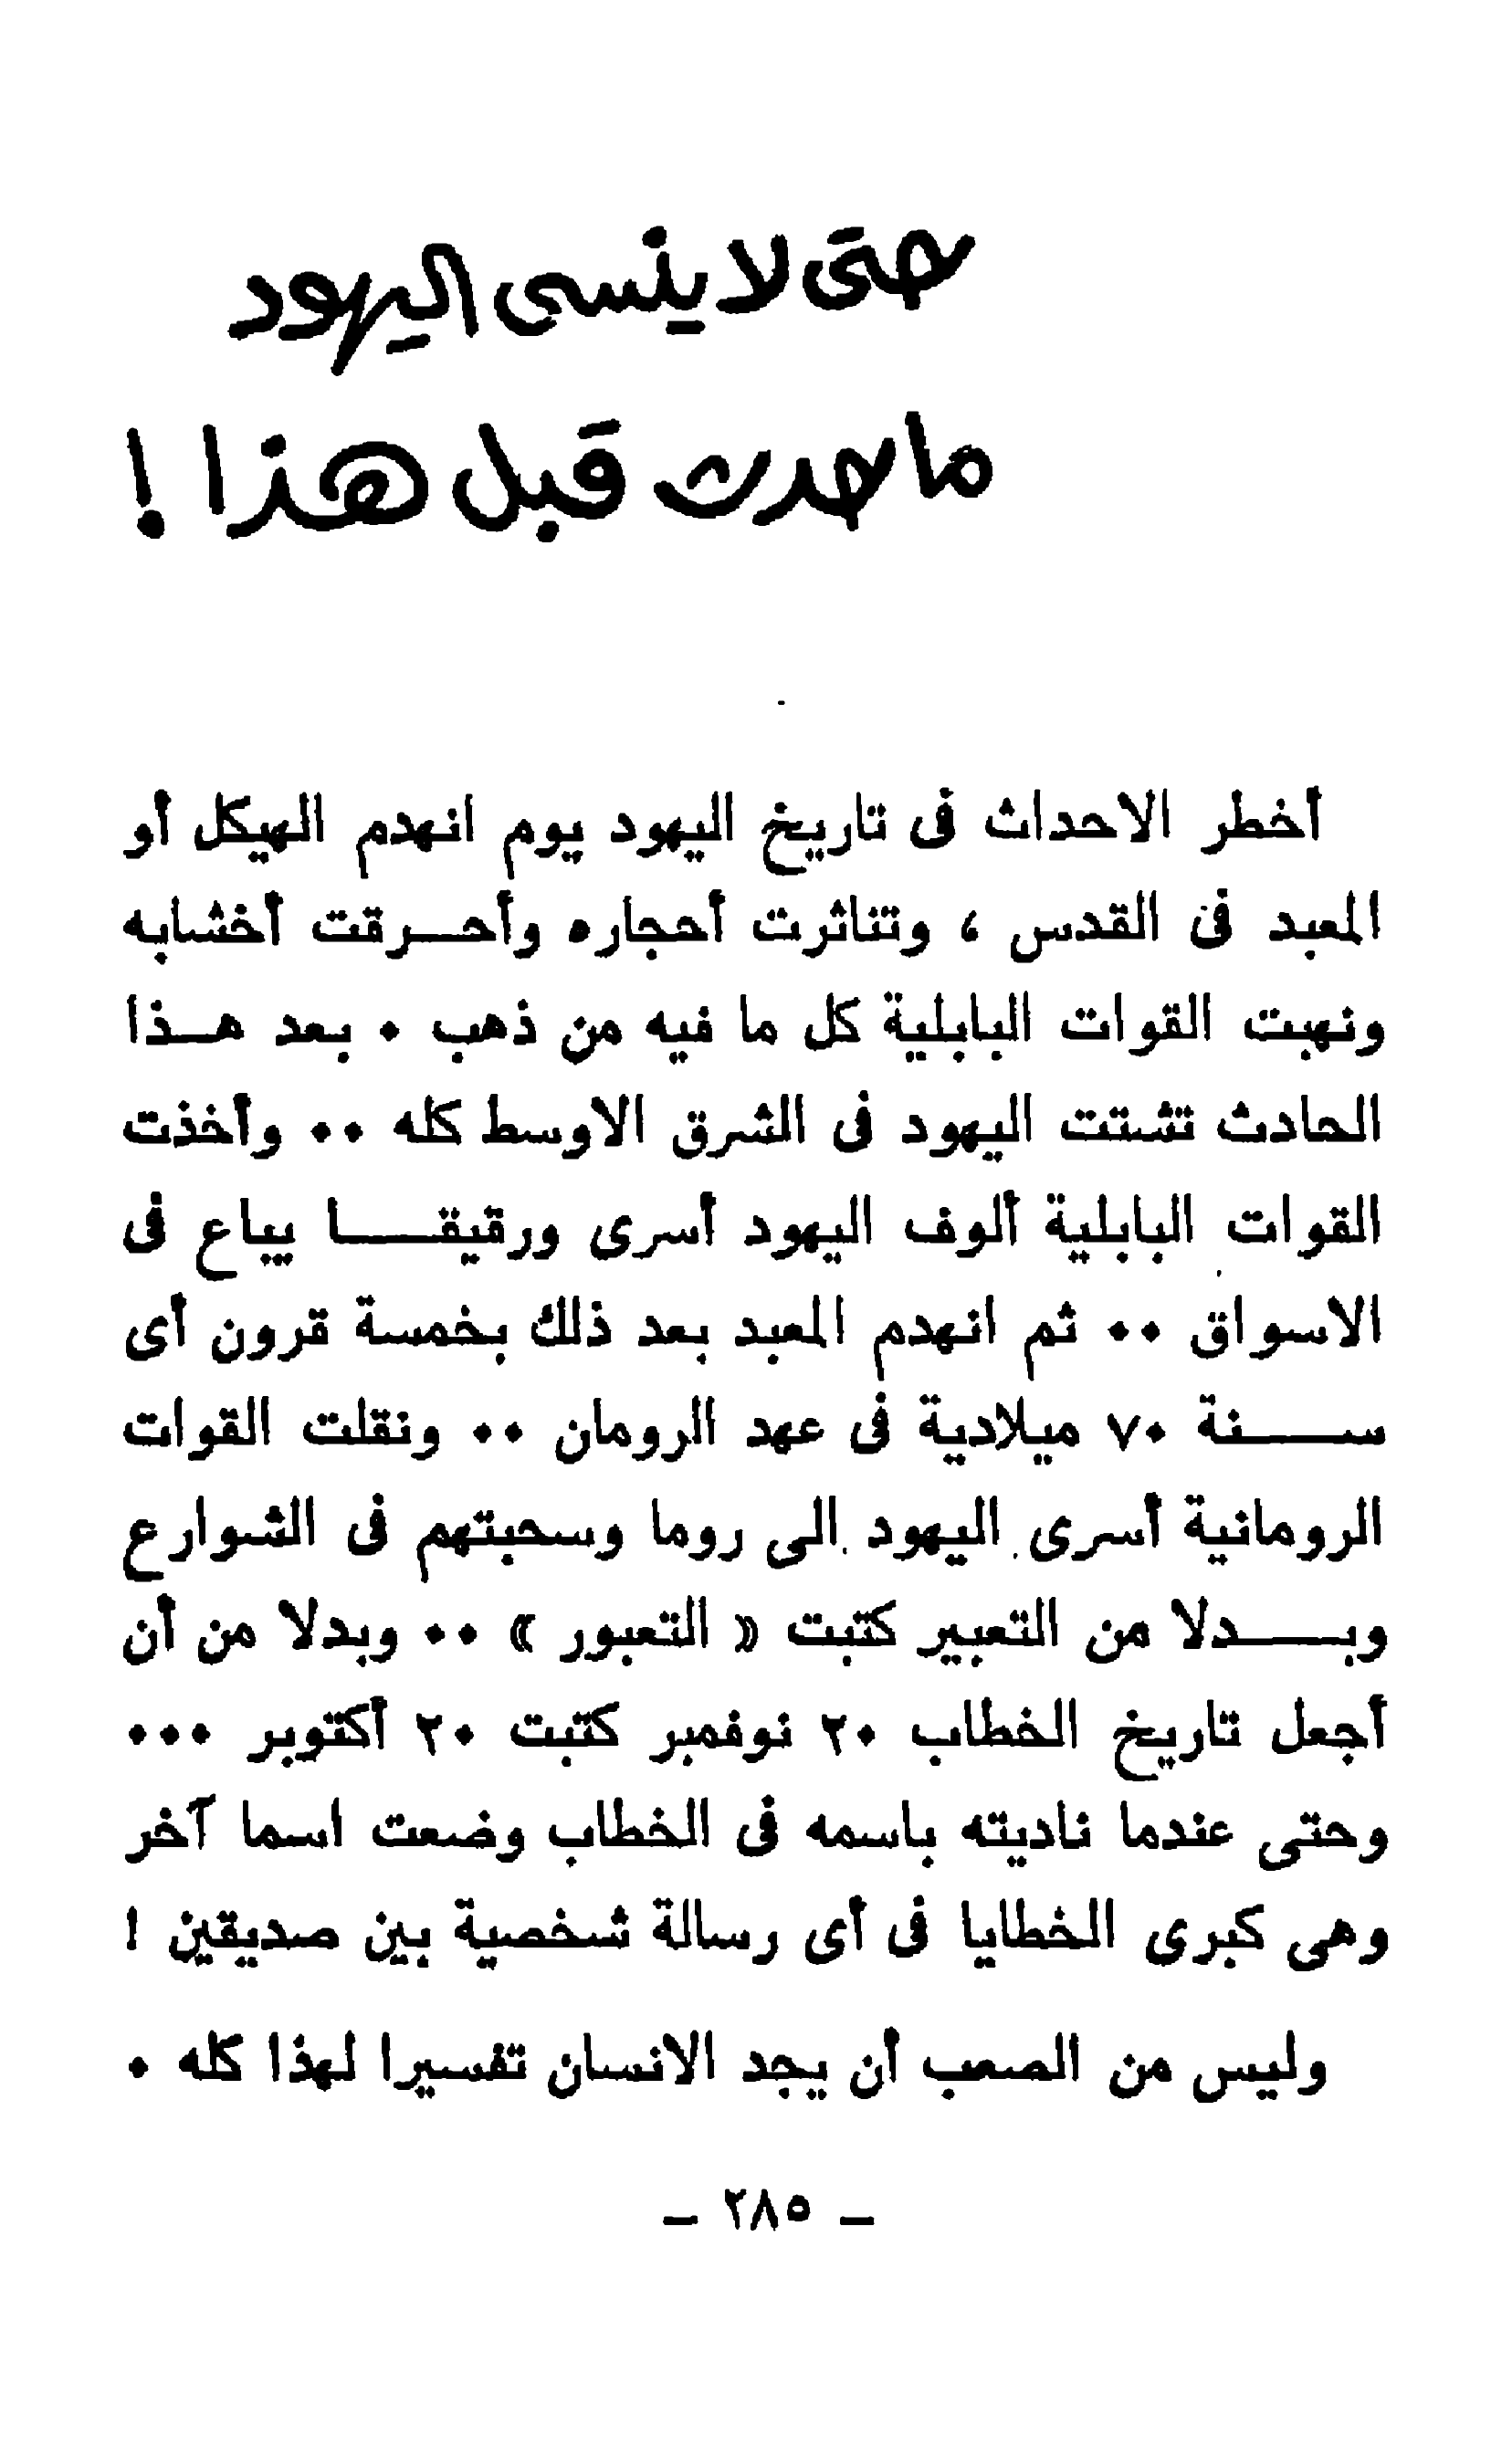 حتى لا ينسى اليهود
ما حدث قبل هذا !
أخطر الاحداث فى تاريخ اليهود يوم انهدم الهيكل أو
المعبد فى القدس ، وتناثرت أحجاره وأحـــرقت أخشابه
ونهبت القوات البابلية كل ما فيه من ذهب ٠ بعد هــذا
الحادث تشتت اليهود فى الشرق الاوسط كله ٠٠ وأخذت
القوات البابلية ألوف اليهود أسرى ورقيقــــا يباع فى
الاسواق ٠٠ ثم انهدم المعبد بعد ذلك بخمسة قرون أى
ســــنة ٧٠ ميلادية فى عهد الرومان ٠٠ ونقلت القوات
الرومانية أسرى اليهود الى روما وسحبتهم فى الشوارع
وبــــدلا من التعبير كتبت « التعبور » ٠٠ وبدلا من أن
أجعل تاريخ الخطاب ٢٠ نوفمبر كتبت ٢٠ أكتوبر ٠٠٠
وحتى عندما ناديته باسمه فى الخطاب وضعت اسما آخر
وهى كبرى الخطايا فى أى رسالة شخصية بين صديقين !
وليس من الصعب أن يجد الانسان تفسيرا لهذا كله ٠
— ٢٨٥ —